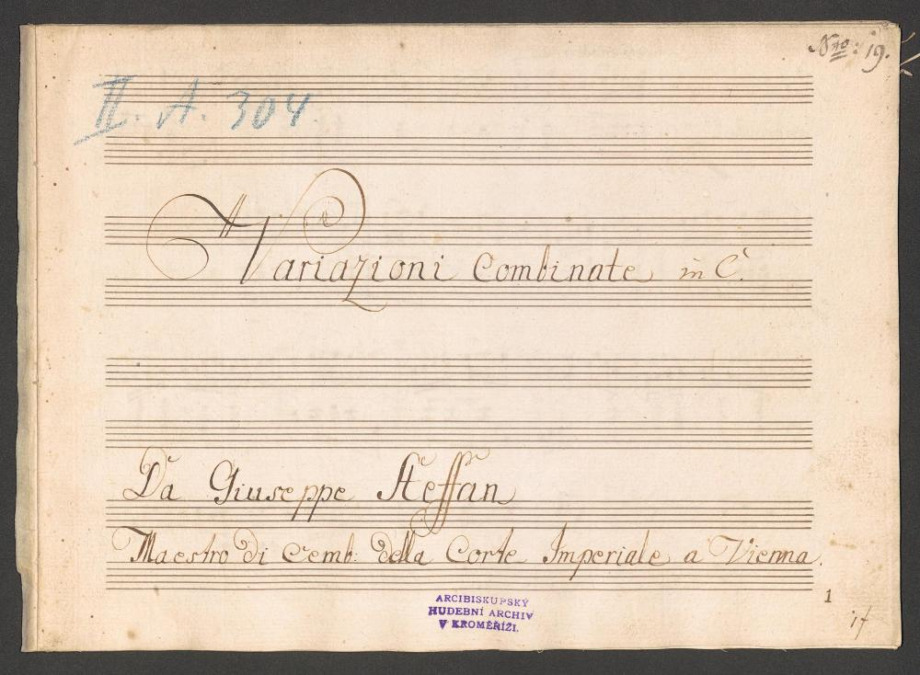 Nro: 19.
II. A. 304
Variazioni Combinate in C.
Da Giuseppe Steffan
Maestro di Cemb: della Corte Imperiale a Vienna.
ARCIBISKUPSKÝ
HUDEBNÍ ARCHIV
V KROMĚŘÍŽI.
1